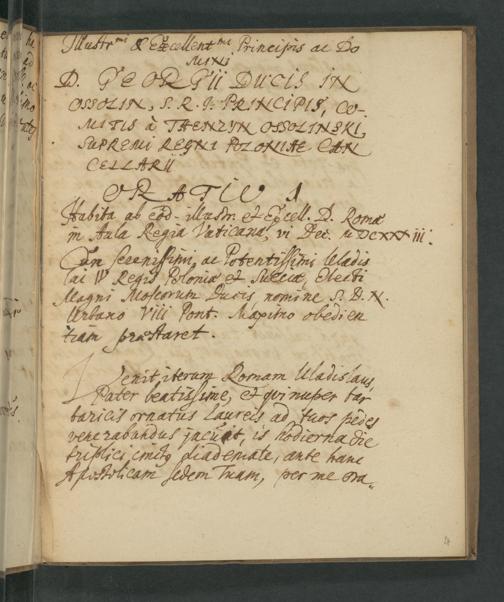 Illustr.mi & Excellent.mi Principis ac Do
MINI
D. GEORGII DUCIS IN
OSSOLIN, S. R. I. PRINCIPIS, CO-
MITIS à THENZYN OSSOLINSKI,
SUPREMI REGNI POLONIAE CAN
CELLARII
ORATIO 1
Habita ab eod. illustr. et Excell. D. Romæ
in Aula Regia Vaticana, vi Dec. MDCXXXiii.
Cum serenissimi, ac Potentissimi Uladis
lai IV Regis Poloniæ et Sueciæ, Electi
Magni Moscorum Ducis, nomine S. D. N.
Urbano VIII Pont. Maximo obedien
tiam præstaret.
Venit iterum Romam Uladislaus,
Pater beatissime, et qui nuper bar
baricis ornatus laureis ad tuos pedes
venerabundus jacuit, is hodierna die
triplici cinctus diademate, ante hanc
Apostolicam sedem Tuam, per me ora-